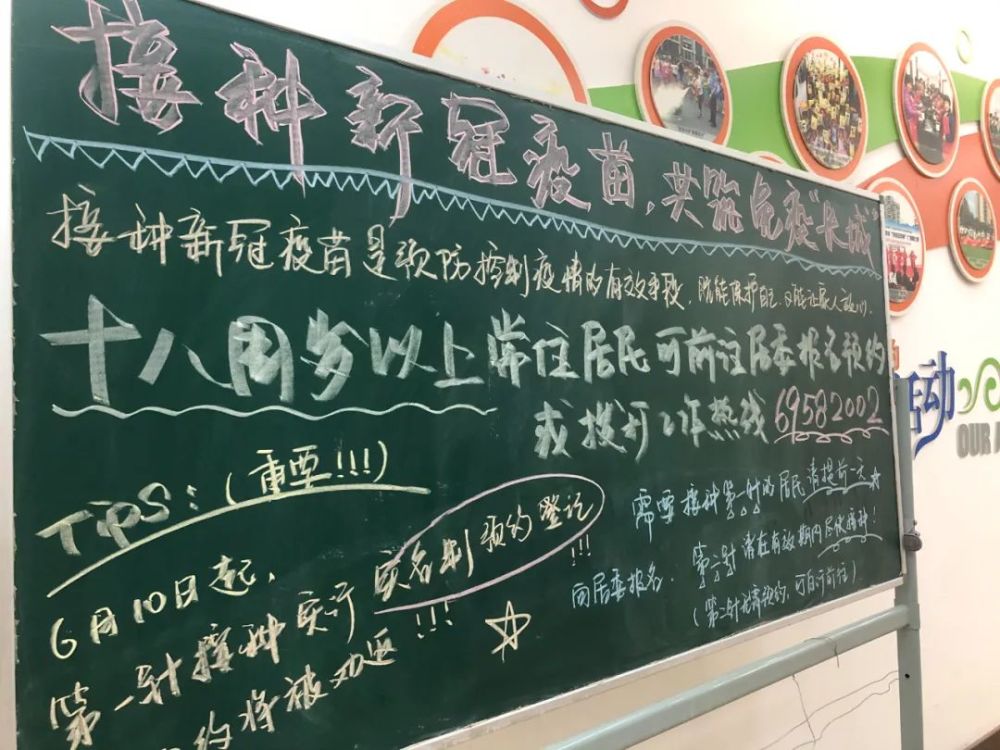 接种新冠疫苗，共筑免疫长城
接种新冠疫苗是预防控制疫情的有效手段，既能保护自己，又能让家人放心。
十八周岁以上常住居民可前往居委报名预约
或拨打工作热线69582002
Tips:（重要!!!）
6月10日起，
第一针接种实行实名制预约登记!!!
约将被劝返!!!
需要接种第一针的居民请提前一天
向居委报名，第二针请在有效期内尽快接种!
（第二针无需预约，可自行前往）
活动
OUR